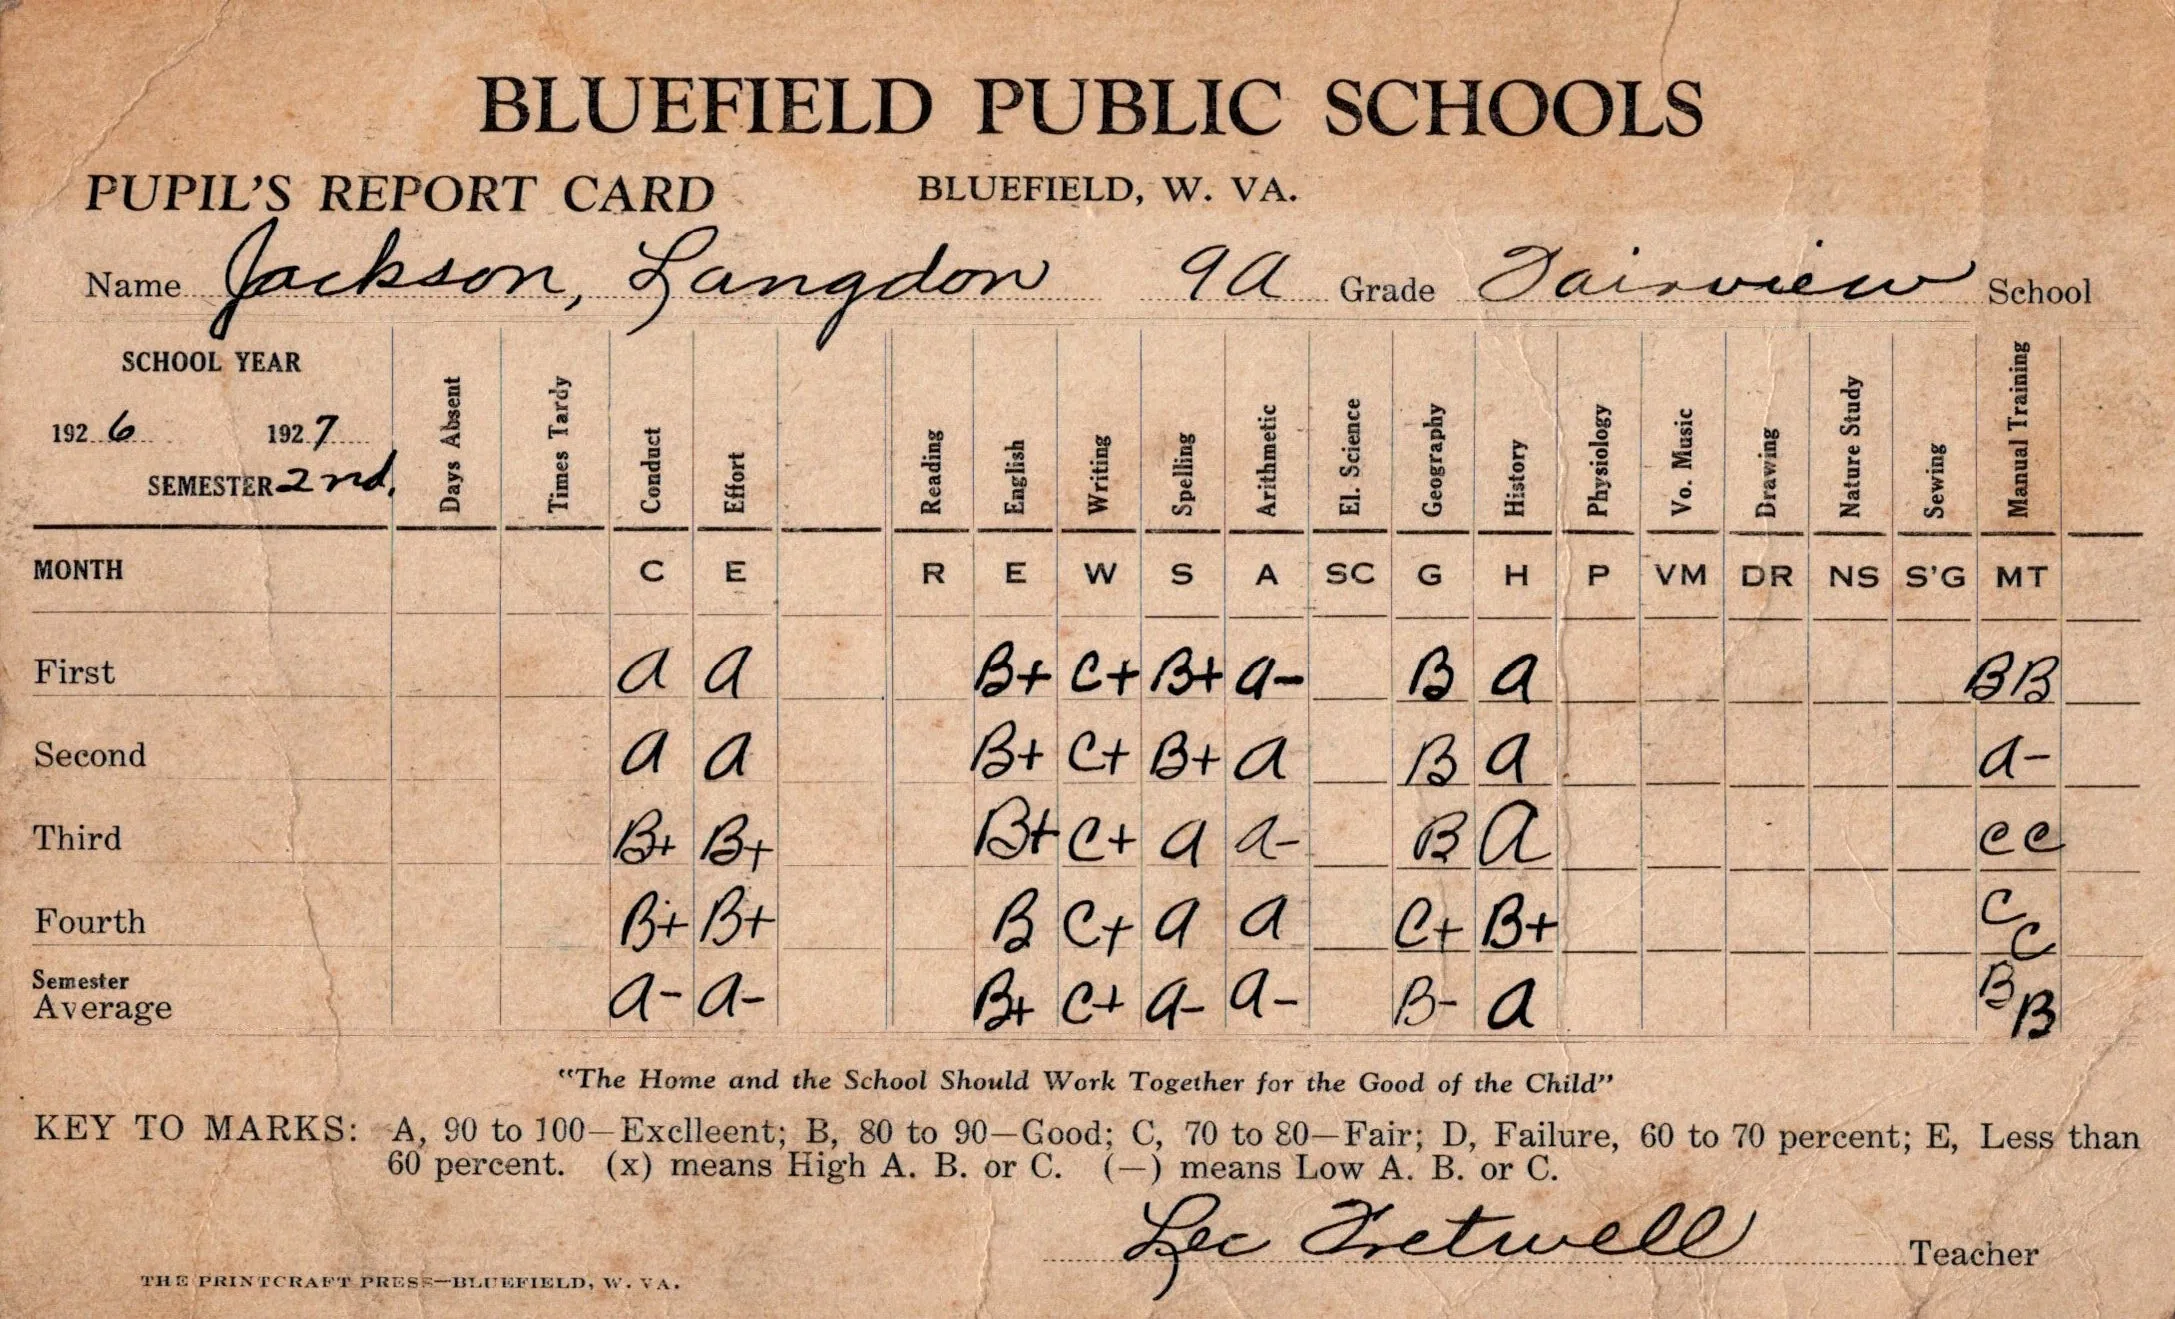 BLUEFIELD PUBLIC SCHOOLS
PUPIL'S REPORT CARD BLUEFIELD, W. VA.
Name Jackson, Langdon 9A Grade Fairview School
SCHOOL YEAR
192 6 192 7
SEMESTER 2nd.
Days Absent Times Tardy Conduct Effort Reading English Writing Spelling Arithmetic El. Science Geography History Physiology Vo. Music Drawing Nature Study Sewing Manual Training
MONTH C E R E W S A SC G H P VM DR NS S'G MT
First A A B+ C+ B+ A- B A BB
Second A A B+ C+ B+ A B A A-
Third B+ B+ B+ C+ A A- B A CC
Fourth B+ B+ B C+ A A C+ B+ CC
Semester
Average A- A- B+ C+ A- A- B- A BB
"The Home and the School Should Work Together for the Good of the Child"
KEY TO MARKS: A, 90 to 100—Exclleent; B, 80 to 90—Good; C, 70 to 80—Fair; D, Failure, 60 to 70 percent; E, Less than
60 percent. (x) means High A. B. or C. (—) means Low A. B. or C.
Lec Fretwell Teacher
THE PRINTCRAFT PRESS—BLUEFIELD, W. VA.